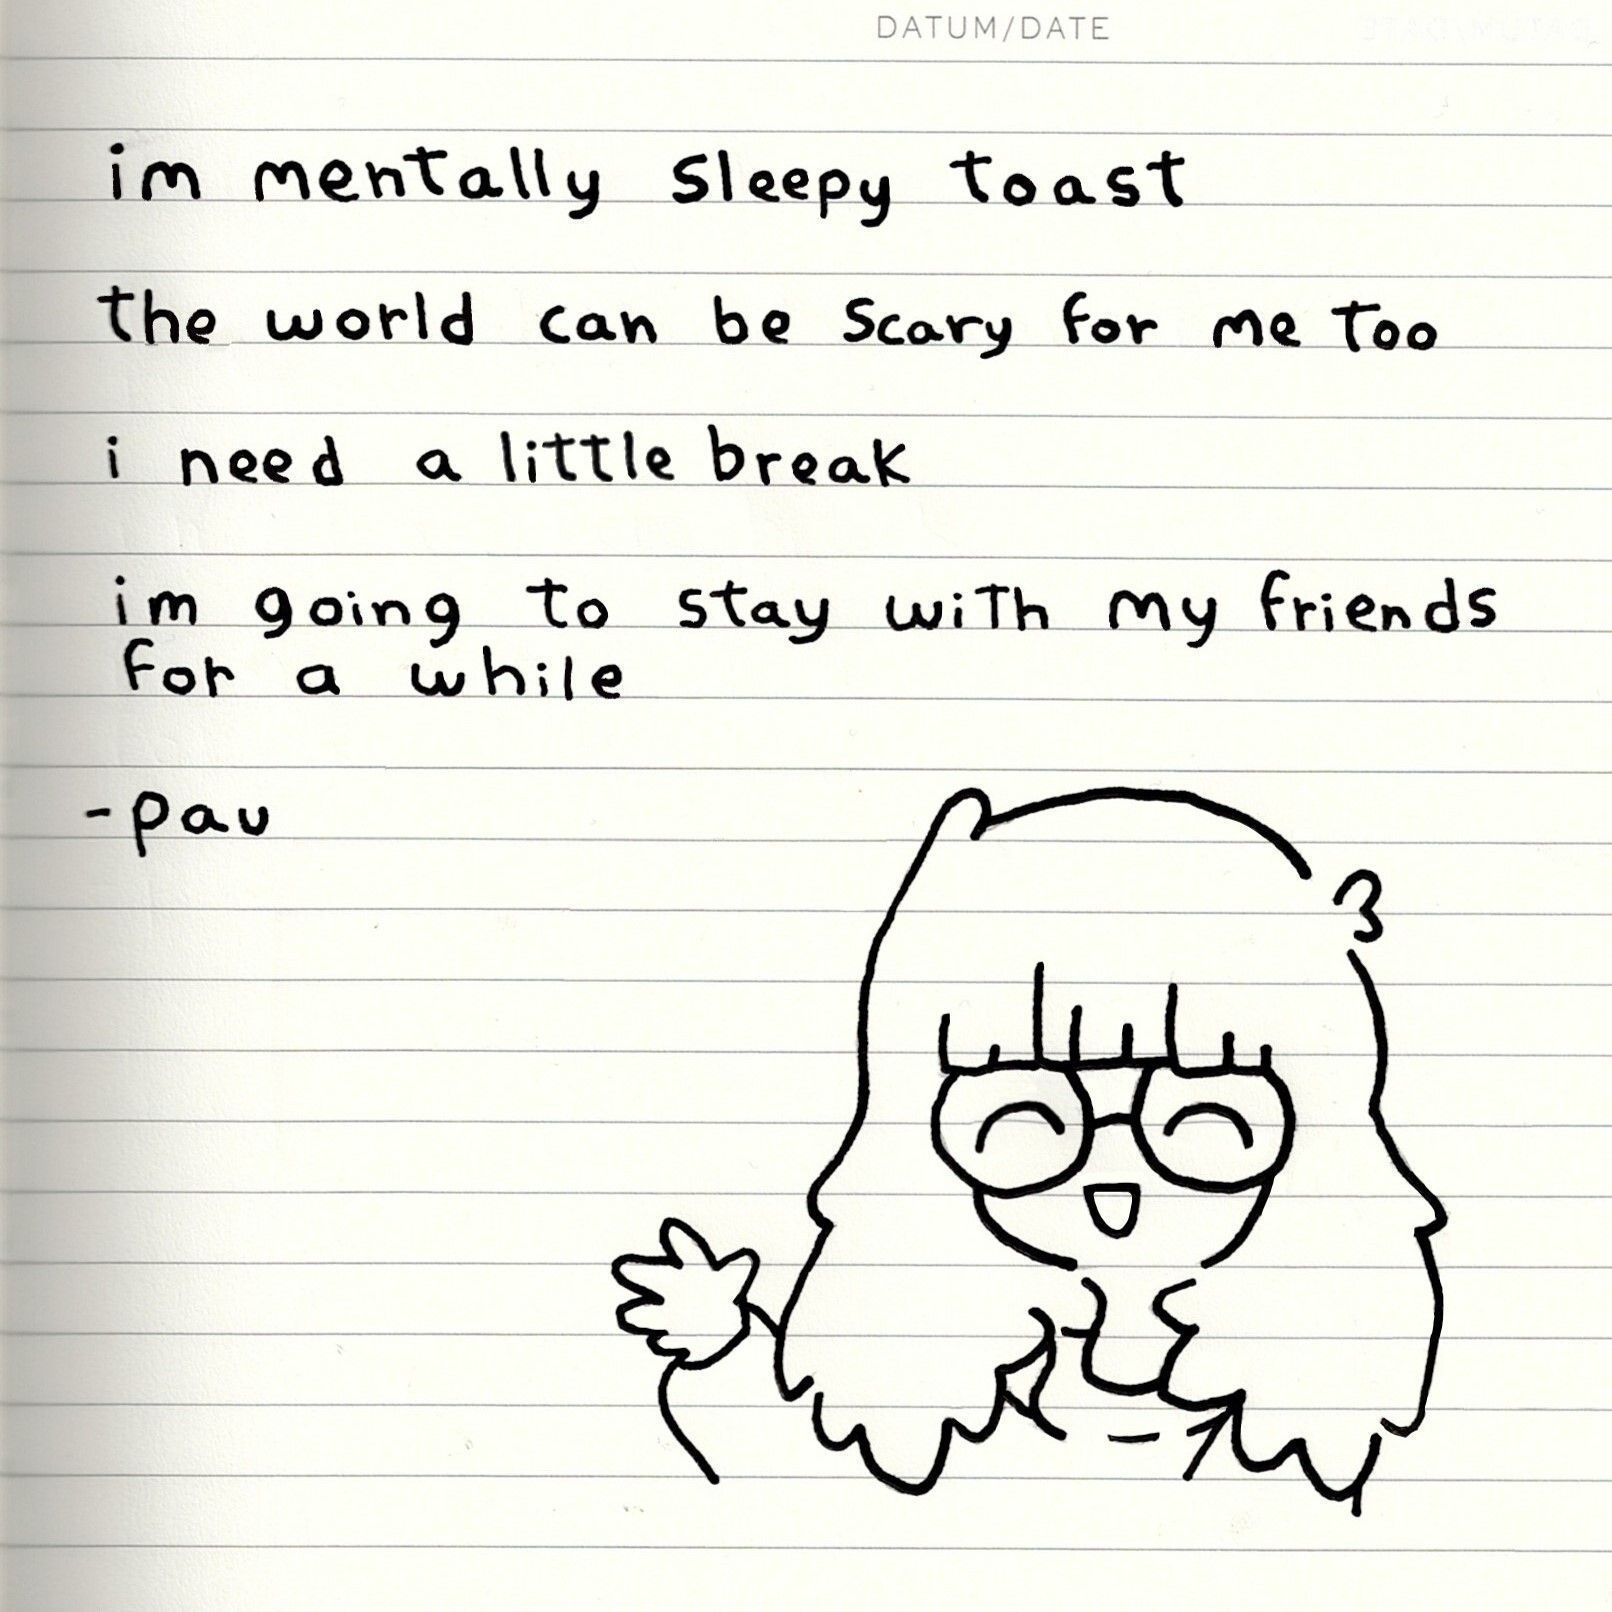 DATUM/DATE
im mentally sleepy toast
the world can be scary for me too
i need a little break
im going to stay with my friends
for a while
-pau